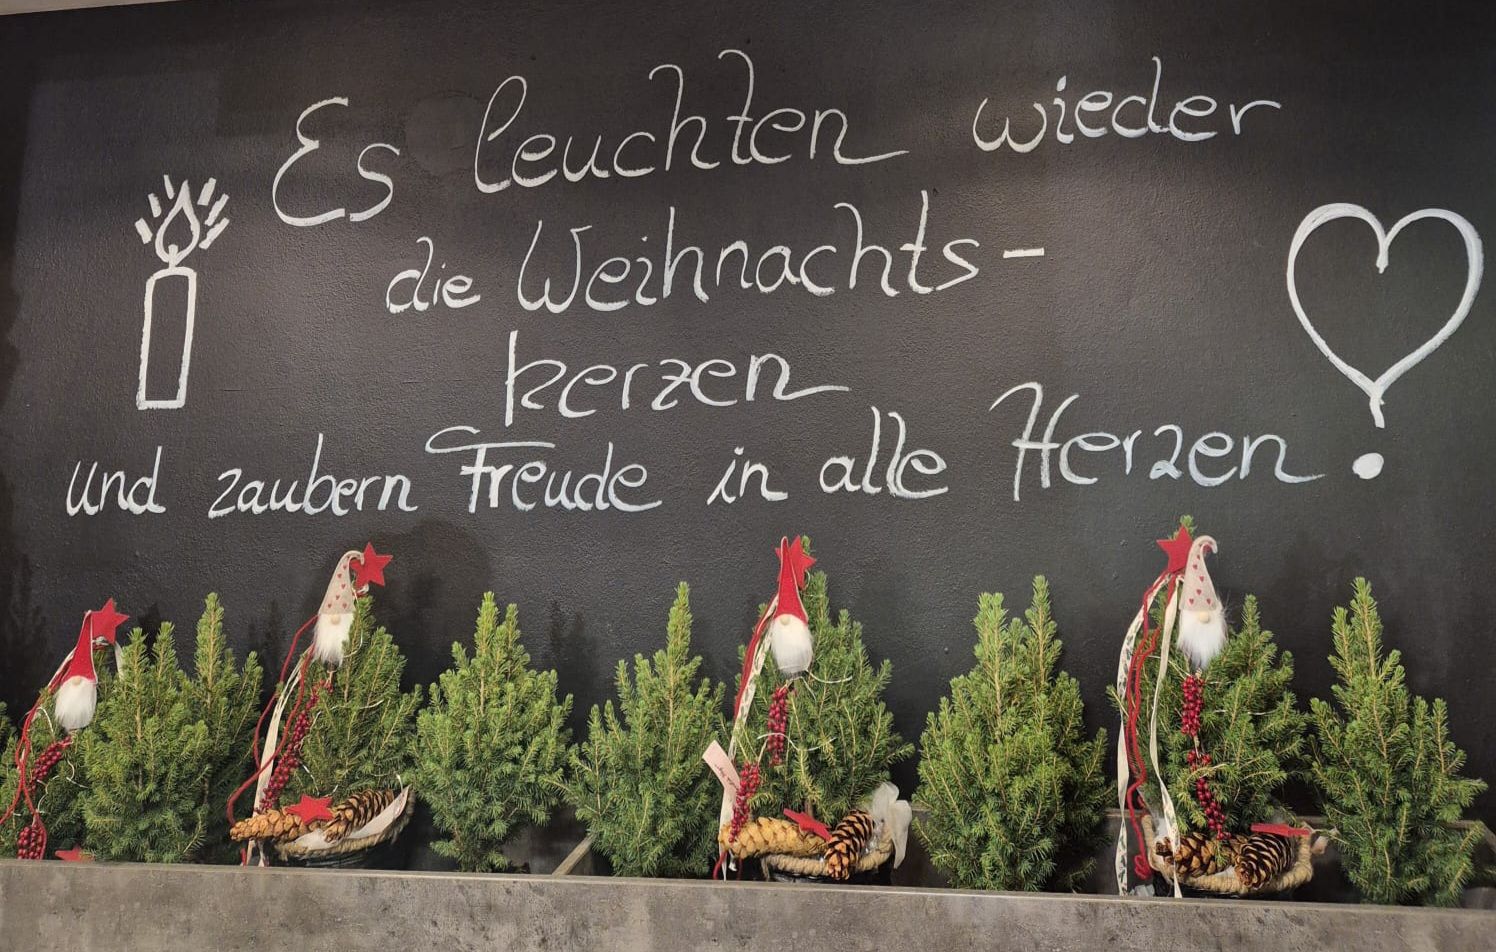 Es leuchten wieder
die Weihnachts-
kerzen
und zaubern Freude in alle Herzen!